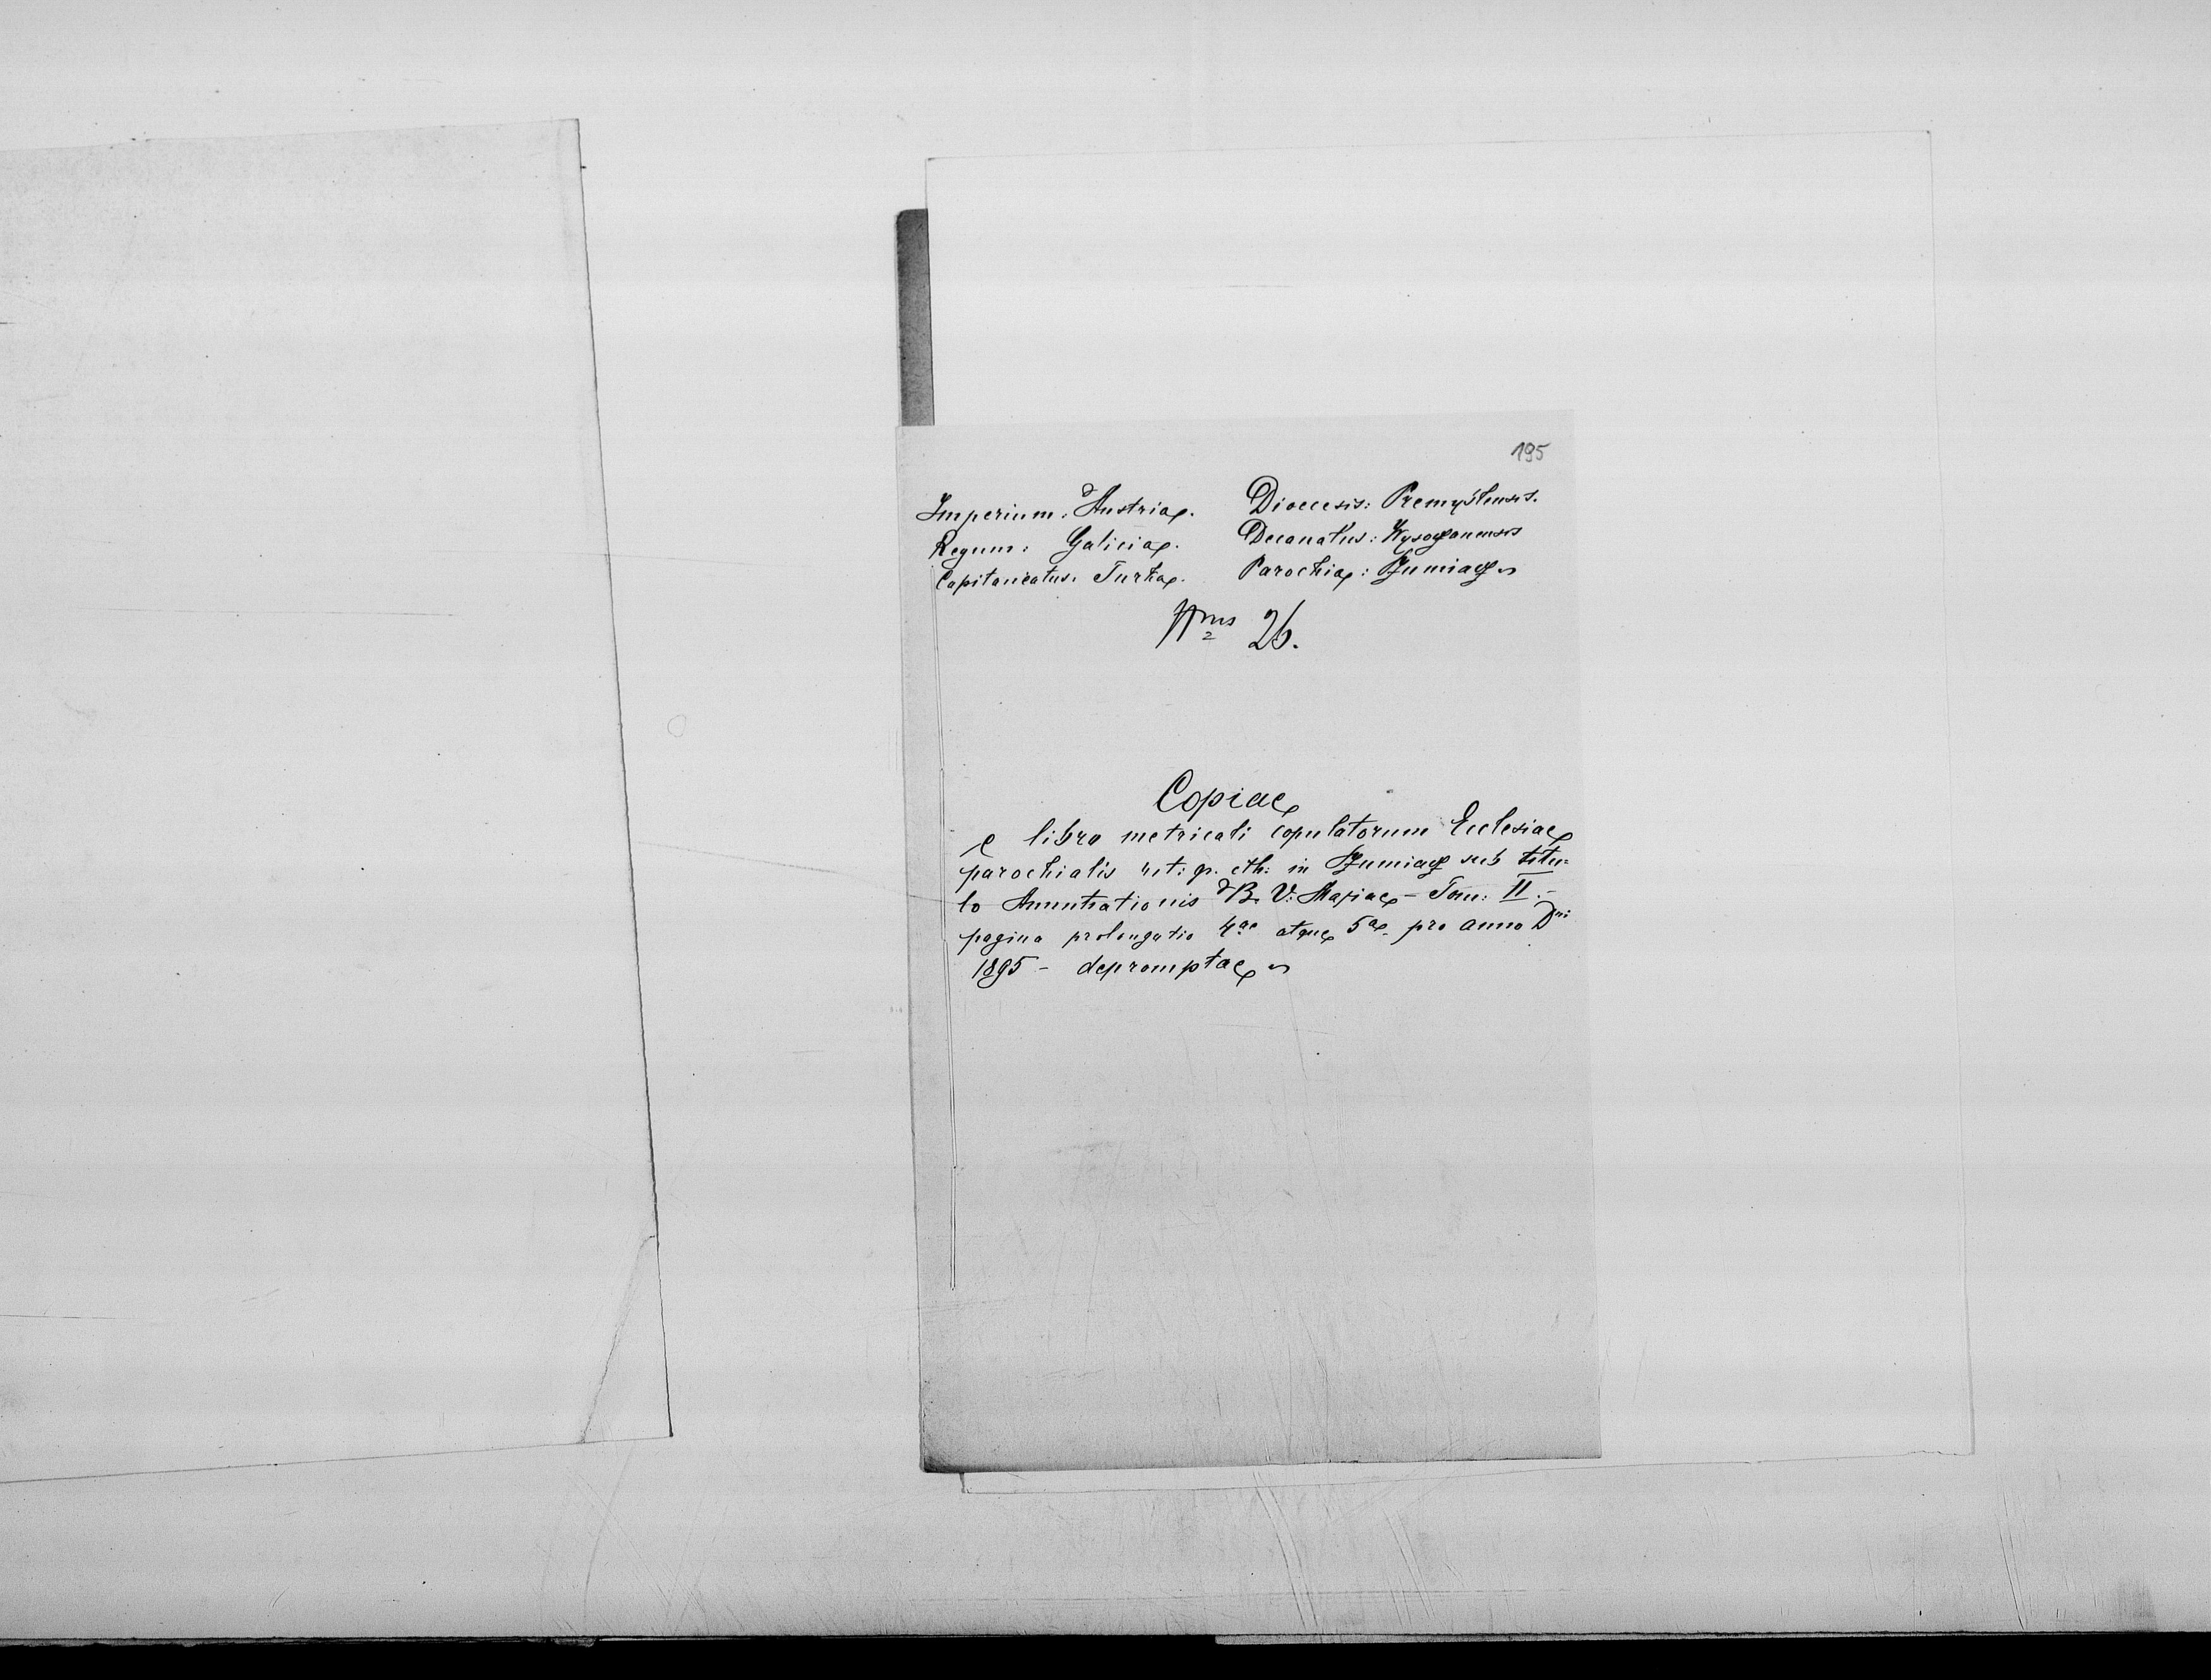 195
Imperium: Austriae. Dioecesis: Premyslensis.
Regnum: Galiciae. Decanatus: Wysoczanensis
Capitaneatus: Turka. Parochiae: Szumiacz
Nrus 26.
Copiae
e libro metricali copulatorum Ecclesiae
parochialis rit: gr. cth: in Szumiacz sub titu=
lo Anuntiationis B. V: Mariae - Tom: II. -
pagina prolongatio 4ae atque 5ae pro anno Dni
1895 - depromptae